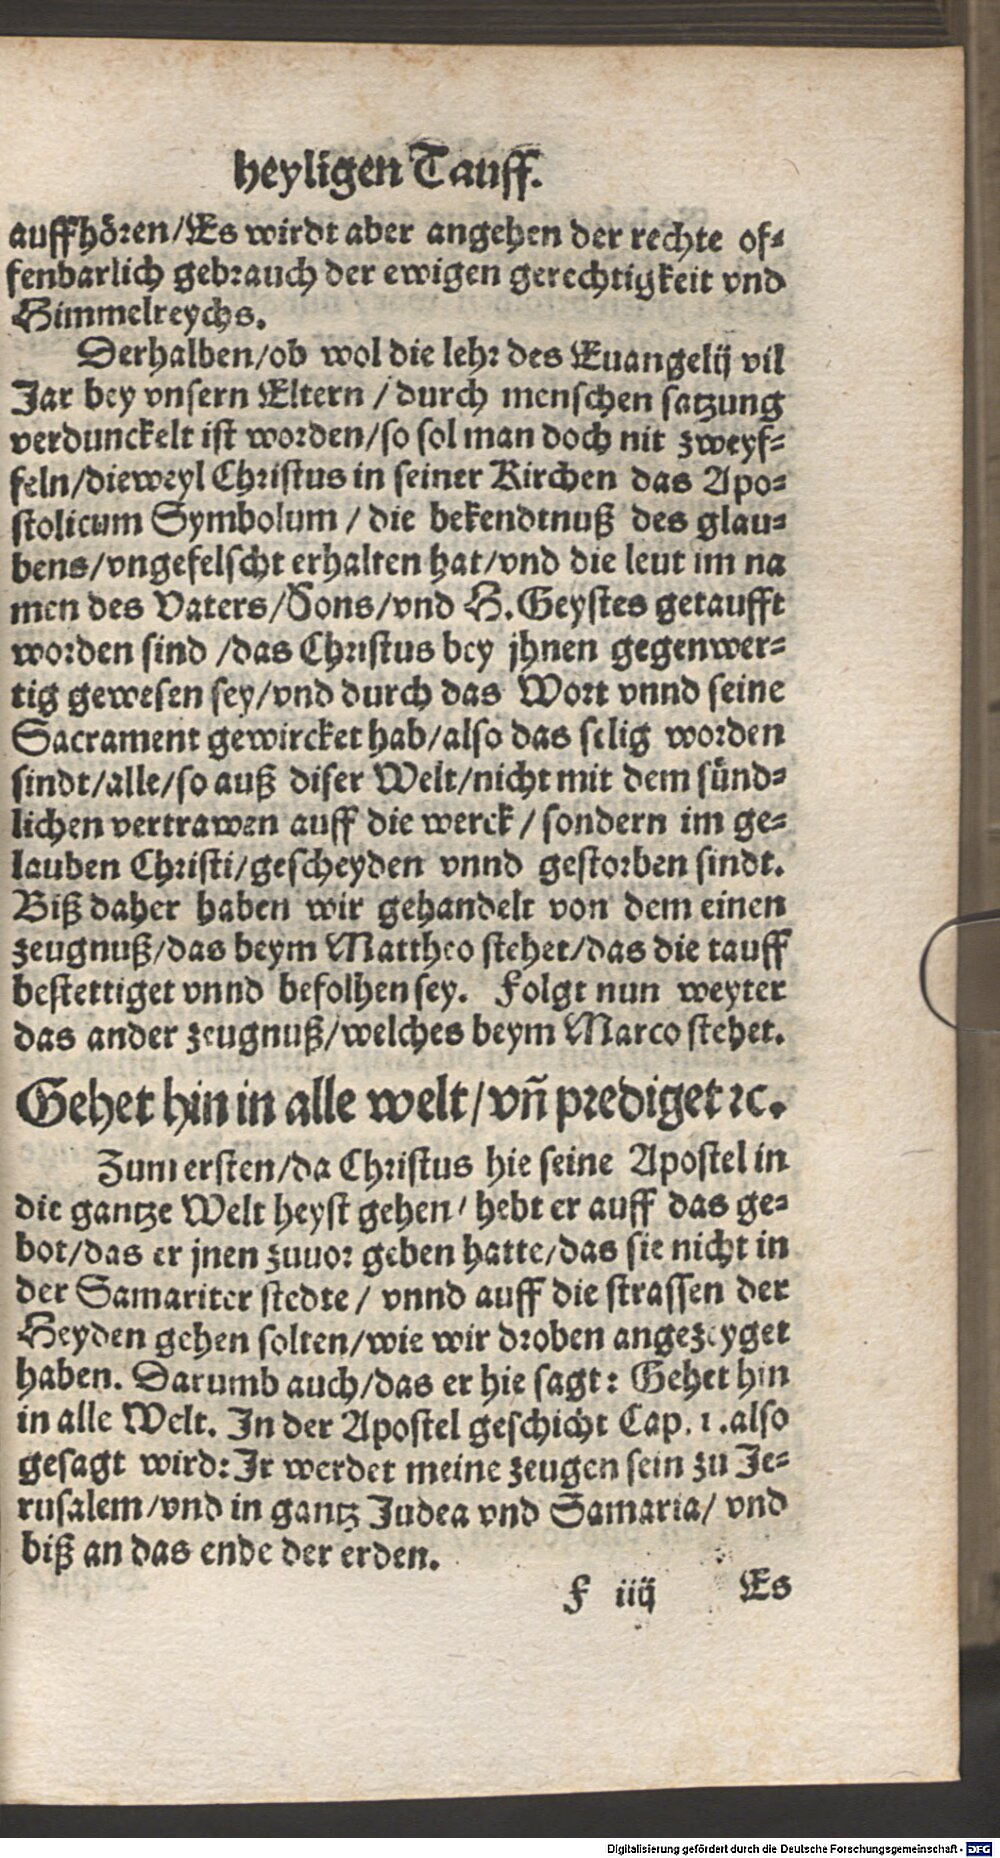 heyligen Tauff.
auffhören/Es wirdt aber angehen der rechte of-
fenbarlich gebrauch der ewigen gerechtigkeit vnd
Himmelreychs.
Derhalben/ob wol die lehr des Euangelij vil
Jar bey vnsern Eltern / durch menschen satzung
verdunckelt ist worden/so sol man doch nit zweyf-
feln/dieweyl Christus in seiner Kirchen das Apo-
stolicum Symbolum / die bekendtnuß des glau-
bens/vngefelscht erhalten hat/vnd die leut im na
men des Vaters/Sons/vnd H. Geystes getaufft
worden sind /das Christus bey jhnen gegenwer-
tig gewesen sey/vnd durch das Wort vnnd seine
Sacrament gewircket hab/also das selig worden
sindt/alle/so auß diser Welt/nicht mit dem sünd-
lichen vertrawen auff die werck / sondern im ge-
lauben Christi/gescheyden vnnd gestorben sindt.
Biß daher haben wir gehandelt von dem einen
zeugnuß/das beym Mattheo stehet/das die tauff
bestettiget vnnd befolhen sey. Folgt nun weyter
das ander zeugnuß/welches beym Marco stehet.
Gehet hin in alle welt/vñ prediget ꝛc.
Zum ersten/da Christus hie seine Apostel in
die gantze Welt heyst gehen/ hebt er auff das ge-
bot/das er jnen zuuor geben hatte/das sie nicht in
der Samariter stedte / vnnd auff die strassen der
Heyden gehen solten/wie wir droben angezeyget
haben. Darumb auch/das er hie sagt: Gehet hin
in alle Welt. In der Apostel geschicht Cap. 1. also
gesagt wird: Ir werdet meine zeugen sein zu Je-
rusalem/vnd in gantz Judea vnd Samaria/ vnd
biß an das ende der erden.
F iiij Es
Digitalisierung gefördert durch die Deutsche Forschungsgemeinschaft - DFG